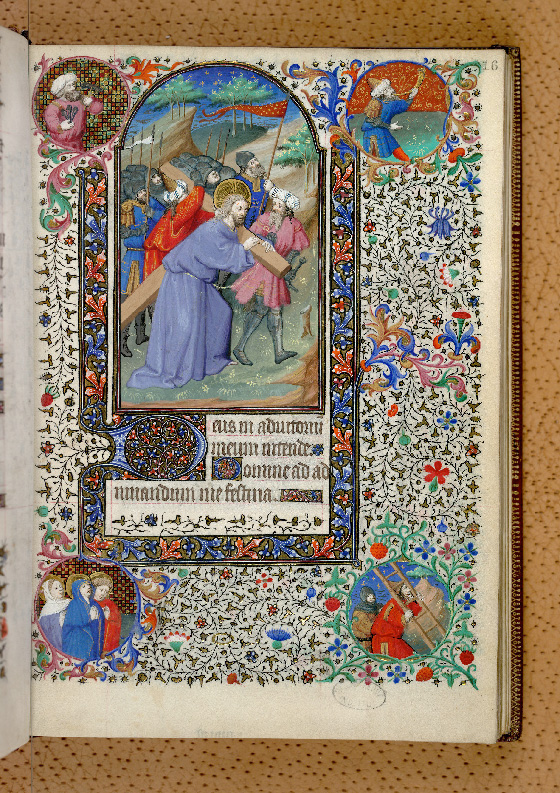 16
Deus in adiutoriu
meum intende.
Domine ad ad
iuuandum me festina.